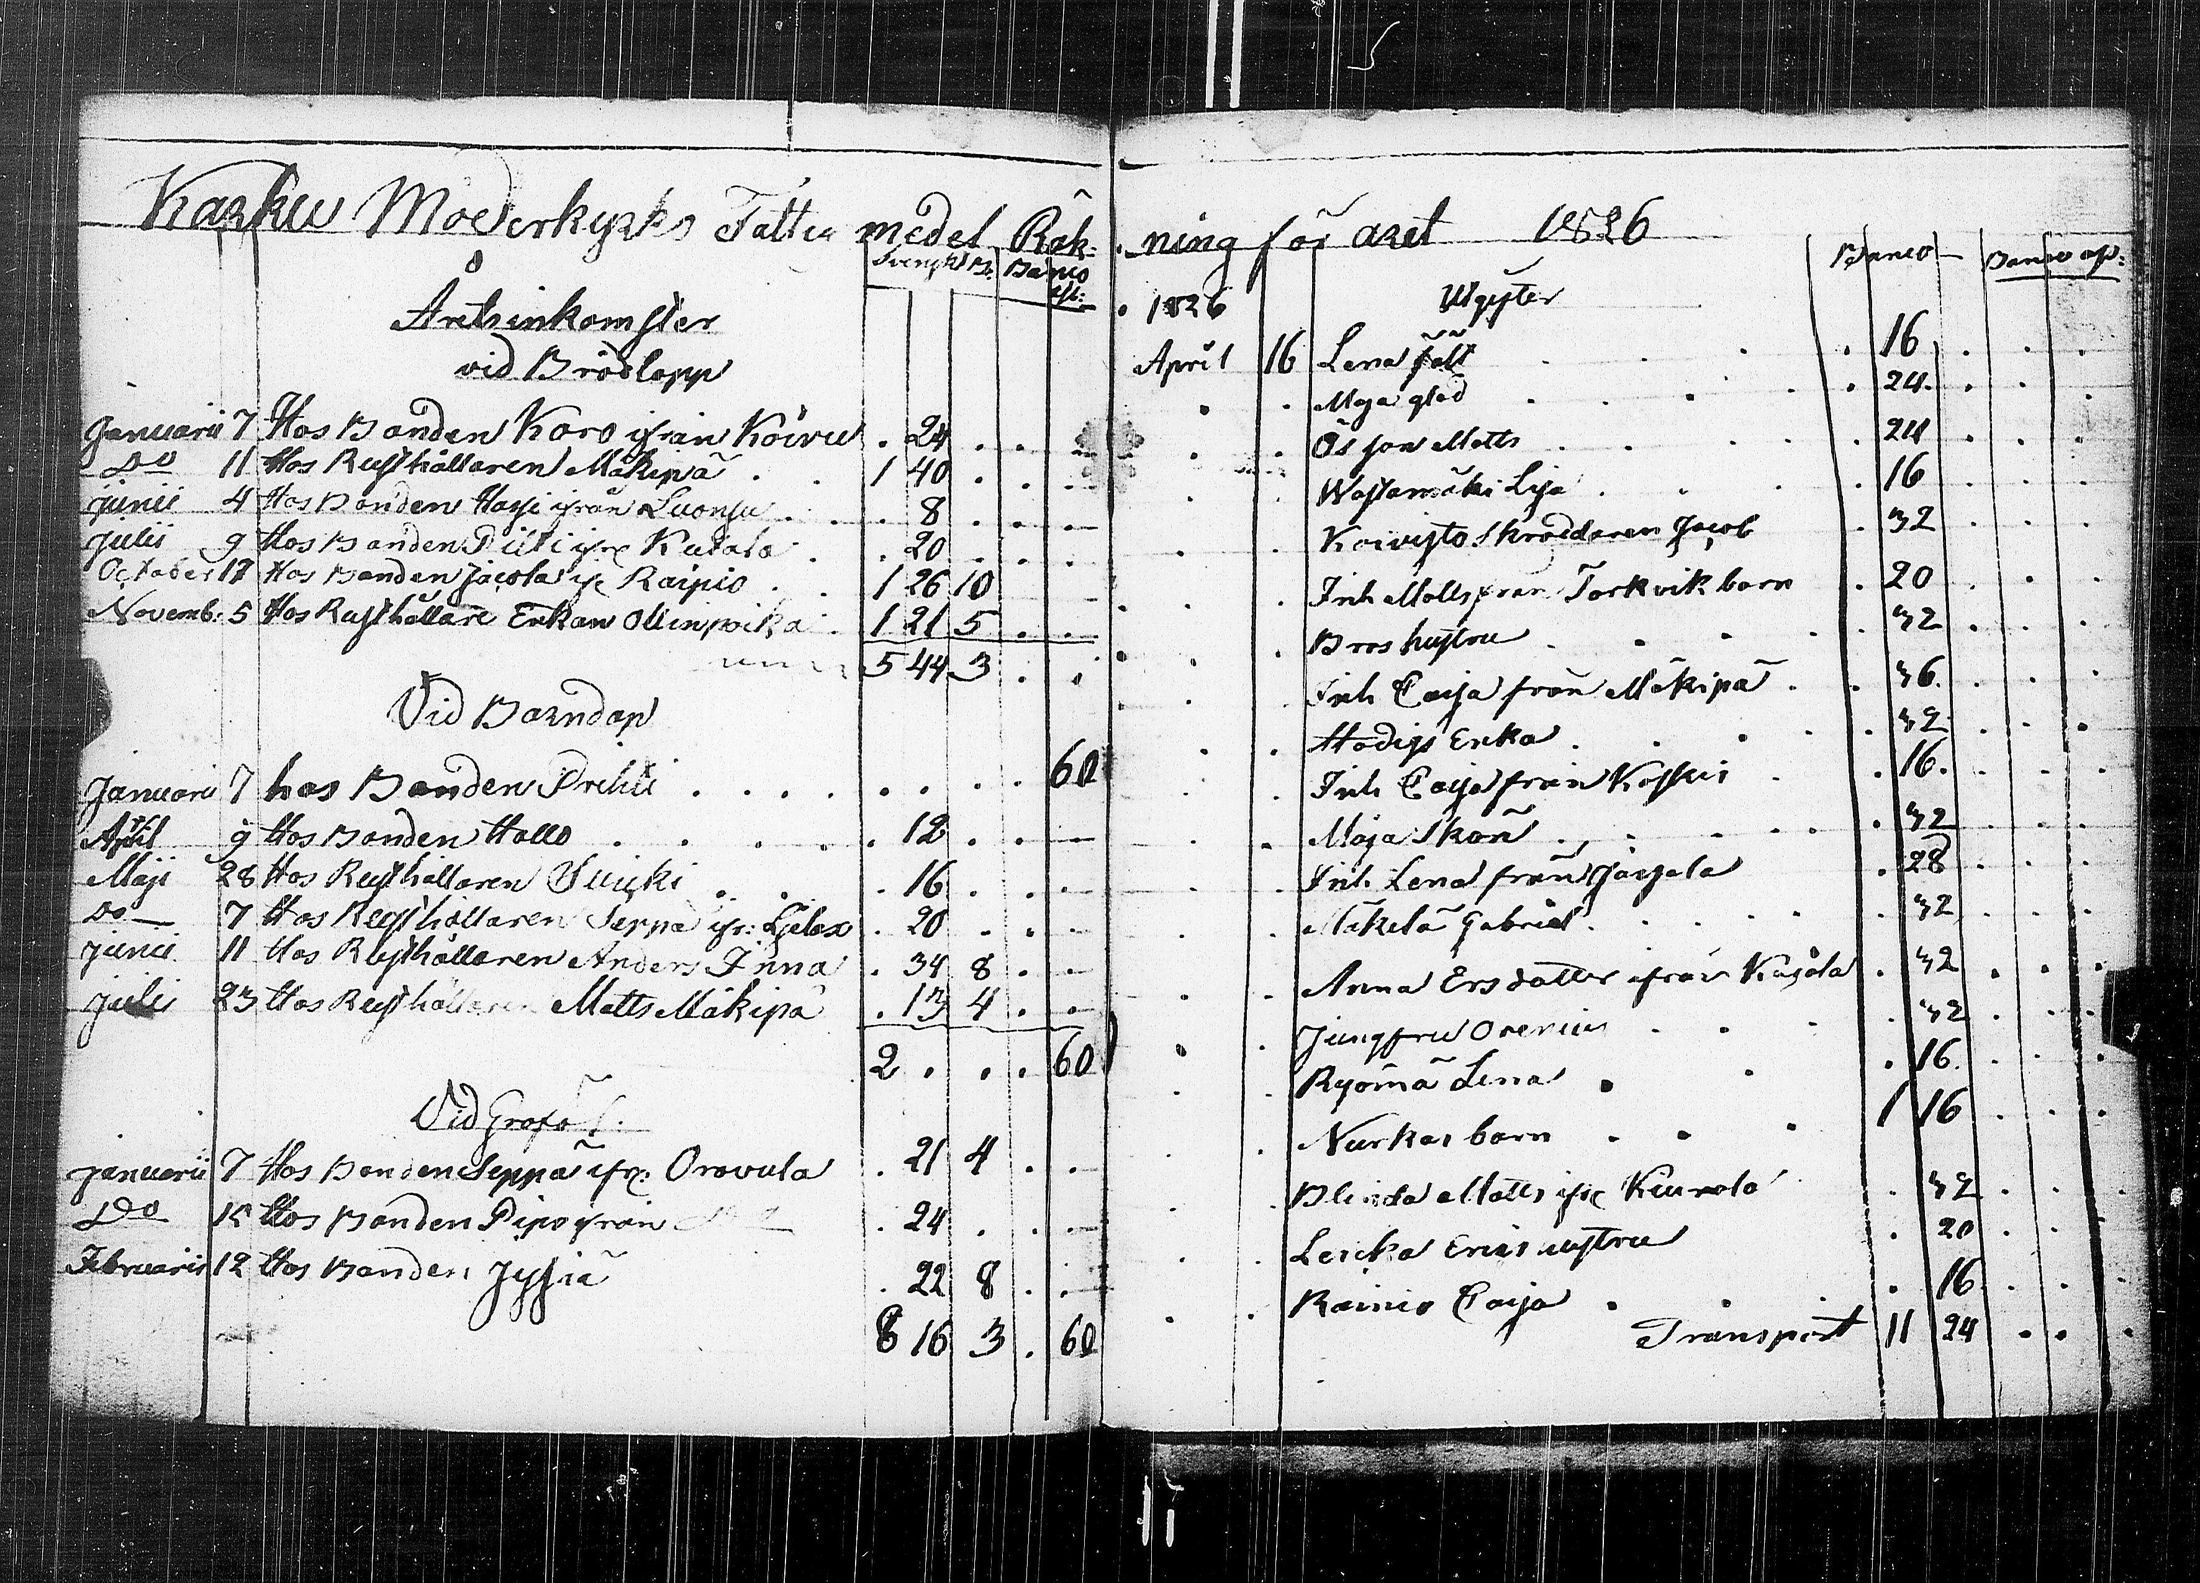 Karku Moderkyrks Fattig medel Räk-
Svensk B. Banco ass:
Årets inkomster
vid Bröslopp
Januarii 7 Hos Bonden Koro ifrån Koivu . 24 . . .
Do 11 Hos Rusthållaren Mäkipä . 1 40 . . .
Junii 4 Hos Bonden Hassi ifrån Luonsu . . 8 . . .
Julii 9 Hos Bonden Pilti ifr: Kutala . . 20 . . .
October 17 Hos Bonden Jacola ifr Raipio . . 1 26 10
Novemb: 5 Hos Rusthållare Enkan Ollinpoika . 1 21 5 . .
5 44 3 . .
Vid Barndop
Januarii 7 hos Bonden Prihti . . . . . . . . 60
April 9 Hos Bonden Hallo . . . . . 12 . . .
Maji 28 Hos Rusthållaren Suiki . . . 16 . . .
Do 7 Hos Rusthållaren Seppä ifr: . 20 . . .
Junii 11 Hos Rusthållaren Anders Inna . 34 8 . .
Julii 23 Hos Rusthållaren Matts Mäkipä . 13 4 . .
2 . . . 60
Vid Graföl.
Januarii 7 Hos Bonden Seppä ifr: Oravula . 21 4 . .
Do 15 Hos Bonden Pipo ifrån . 24 . . .
Februarii 12 Hos Bonden Jyssiä . 22 8 . .
8 16 3 . 60
ning för året 1826
Banco Banco ass:
1826 Utgifter
April 16 Lena fält . . . . 16 . . .
. . Maja glad . . . . 24 . . .
. . Ösjon Matts . . . . 24 . . .
. . Wastamäki Lisa . . . 16 . . .
. . Koivisto Skräddaren Jacob . 32 . . .
. . Inh Matts från Torkvik barn . 20 . . .
. . Bros hustru . . . . 32 . . .
. . Inh Caisa från Mäkipä . . 36 . . .
. . Hadigs Erka . . . . 32 . . .
. . Inh Caisa från Koskis . . 16 . . .
. . Maja Skön . . . . 32 . . .
. . Inh. Lena från Jassala . 28 . . .
. . Mäkelä Gabriel . . . . 32 . . .
. . Anna Ersdotter ifrån Kujala . 32 . . .
. . Jungfru Orenius . . . . 32 . . .
. . Ryömä Lena . . . 16 . . .
. . Nurkas barn . . . 1 16 . . .
. . Blinda Matts ifr Kiurala . 32 . . .
. . Leuka Erics hustru . 20 . . .
. . Rainio Caisa . . . 16 . . .
Transport 11 24 . . .